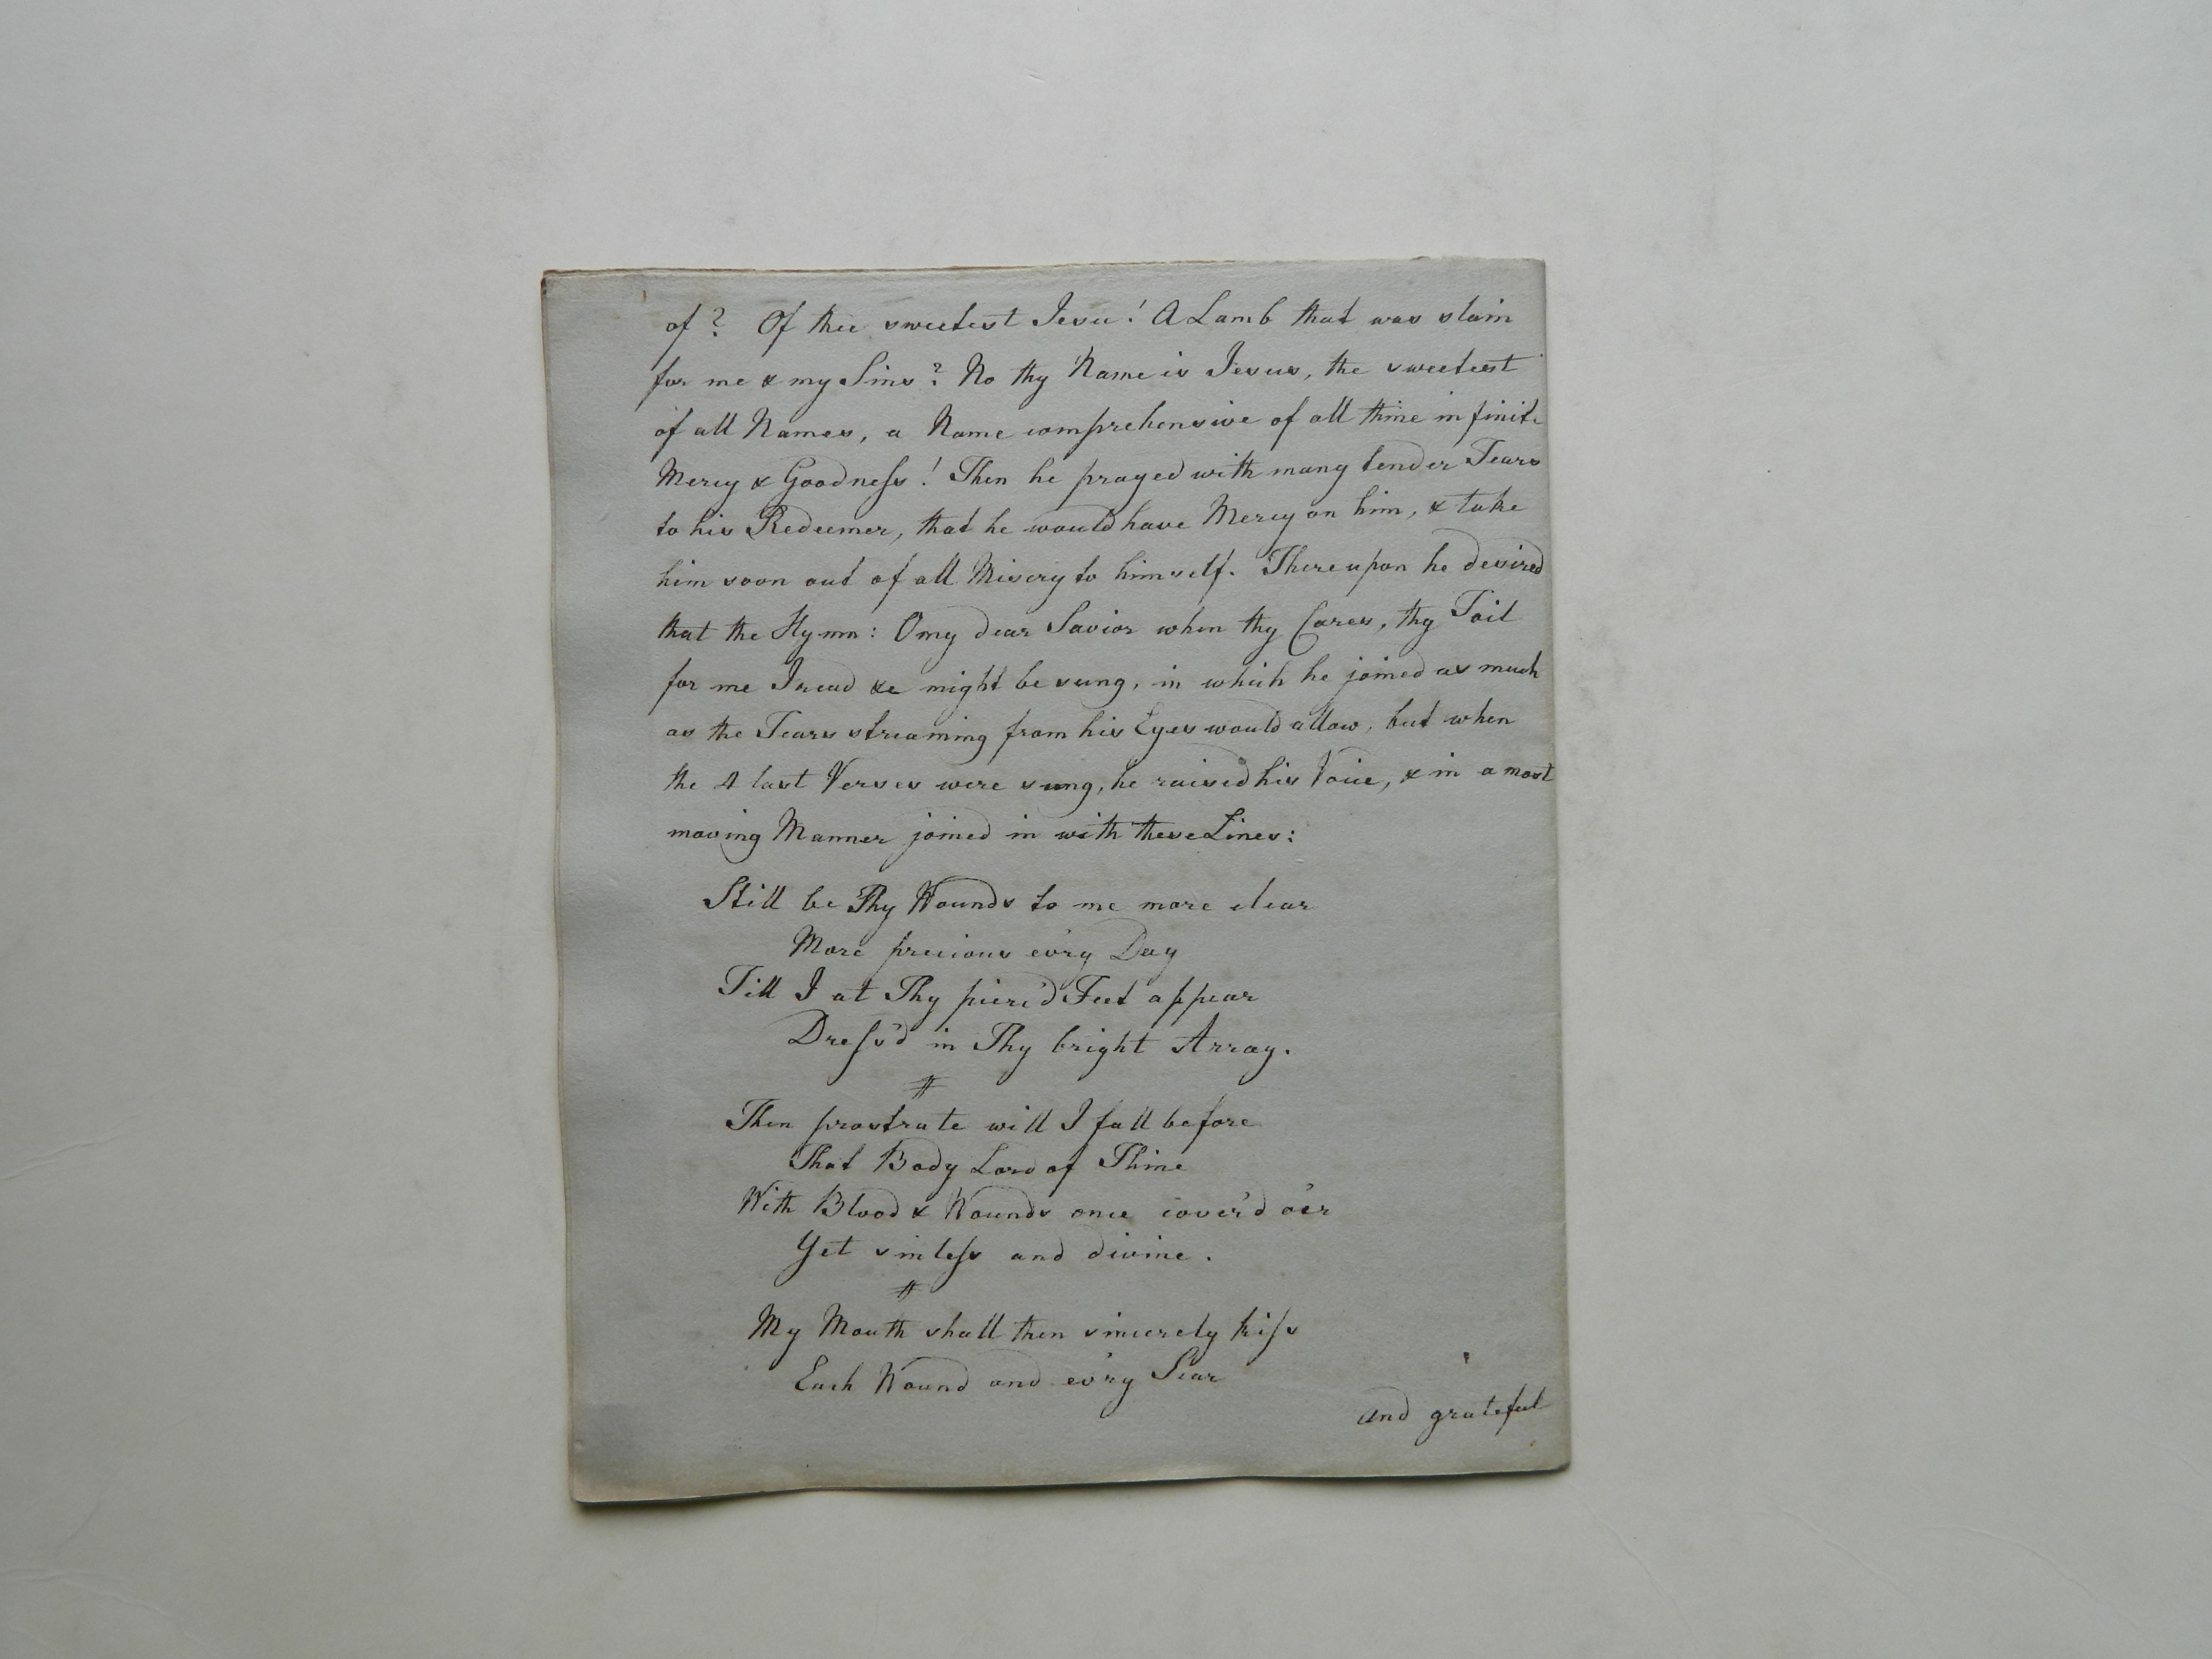 of? Of thee sweetest Jesu! A Lamb that was slain
for me & my Sins? No thy Name is Jesus, the sweetest
of all Names, a Name comprehensive of all thine infinite
Mercy & Goodneſs! Then he prayed with many tender Tears
to his Redeemer, that he would have Mercy on him, & take
him soon out of all Misery to himself. Thereupon he desired
that the Hymn: O my dear Savior when thy Cares, thy Toil
for me I read &c might be sung, in which he joined as much
as the Tears streaming from his Eyes would allow, but when
the 4 last Verses were sung, he raised his Voice, & in a most
moving Manner joined in with these Lines:
Still be Thy Wounds to me more clear
More precious ev'ry Day
Till I at Thy pierc'd Feet appear
Dreſs'd in Thy bright Array.
Then prostrate will I fall before
That Body Lord of Thine
With Blood & Wounds once cover'd o'er
Yet sinleſs and divine.
My Mouth shall then sincerely kiſs
Each Wound and ev'ry Scar
and grateful